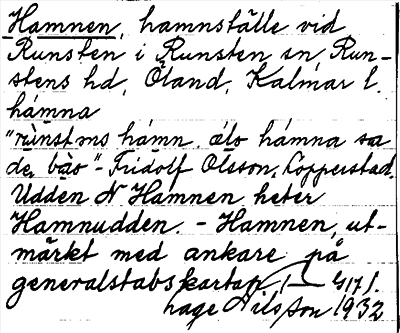 Hamnen, hamnställe vid
Runsten i Runsten sn, Run-
stens hd, Öland, Kalmar l.
hámna
"rùnstns hámn. álo hámna sa
de bào" - Fridolf Olsson, Lopperstad.
Udden N Hamnen heter
Hamnudden. - Hamnen, ut-
märkt med ankare på
generalstabskartan.
Hage Nilsson 1932